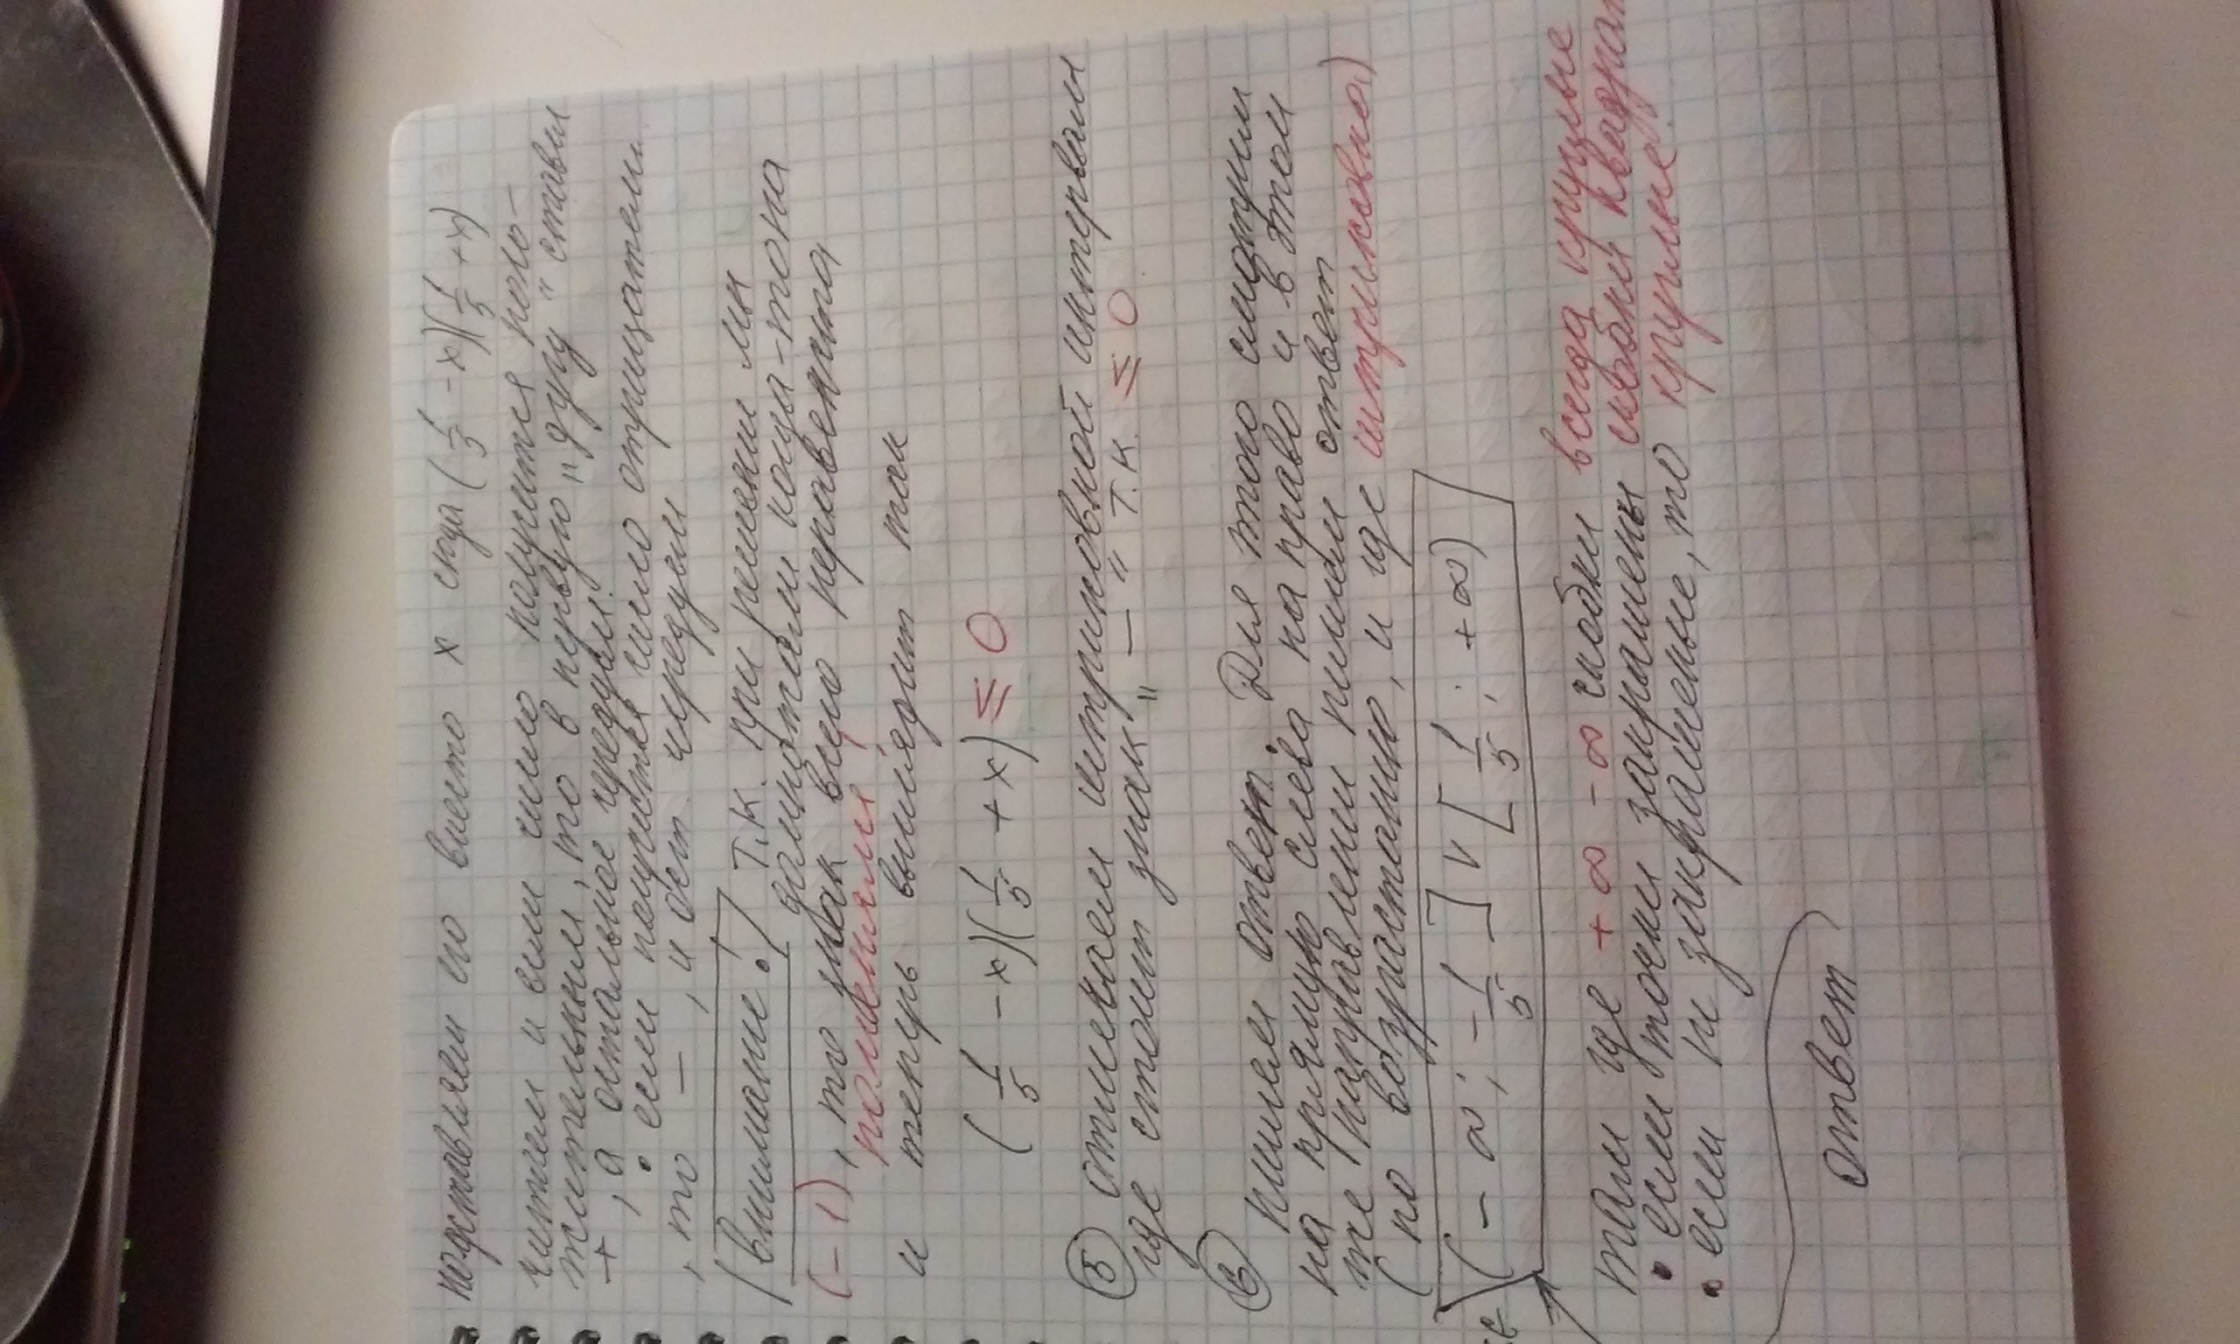 подставляем его вместо х сюда (1/5 - х)(1/5 + х)
считаем и если число получится поло-
жительным, то в первую "дугу" ставим
+, а остальное чередуем.
• если получится число отрицательн.
, то —, и ост. чередуем
внимание! т.к. при решении мы
домножали когда-то на
(-1), то знак всего неравенства
поменяли
и теперь выглядит так
(1/5 - х)(1/5 + х) ≤ 0
⑤ отмечаем штриховкой интервалы
где стоит знак "—" т.к. ≤ 0
⑥ пишем ответ. Для того смотрим
на прямую слева на право и в этом
же направлении пишем ответ
(по возрастанию, и где штриховка)
(- ∞; - 1/5 ] v [ 1/5 ; + ∞)
там где + ∞ - ∞ скобки всегда круглые
• если точки закрашены скобки квадрат
• если не закрашеные, то круглые.
Ответ